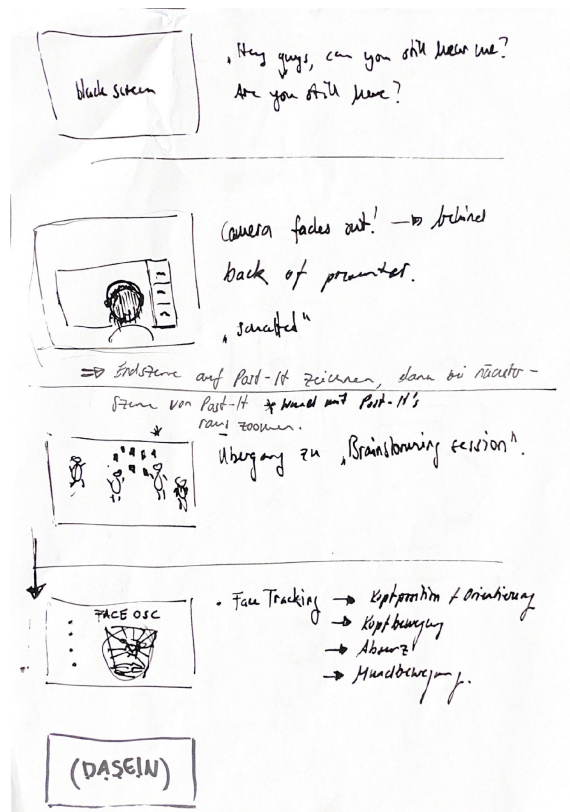 black screen
„Hey guys, can you still hear me?
Are you still here?
Camera fades out! → behind
back of presenter.
⇒ Endszene auf Post-It zeichnen, dann bei nächster-
Szene von Post-It * Wand mit Post-It's
raus zoomen.
*
Übergang zu „Brainstorming session".
FACE OSC
• Face Tracking → Kopfposition + Orientierung
→ Kopfbewegung
→ Absenz
→ Mundbewegung.
(DASEIN)